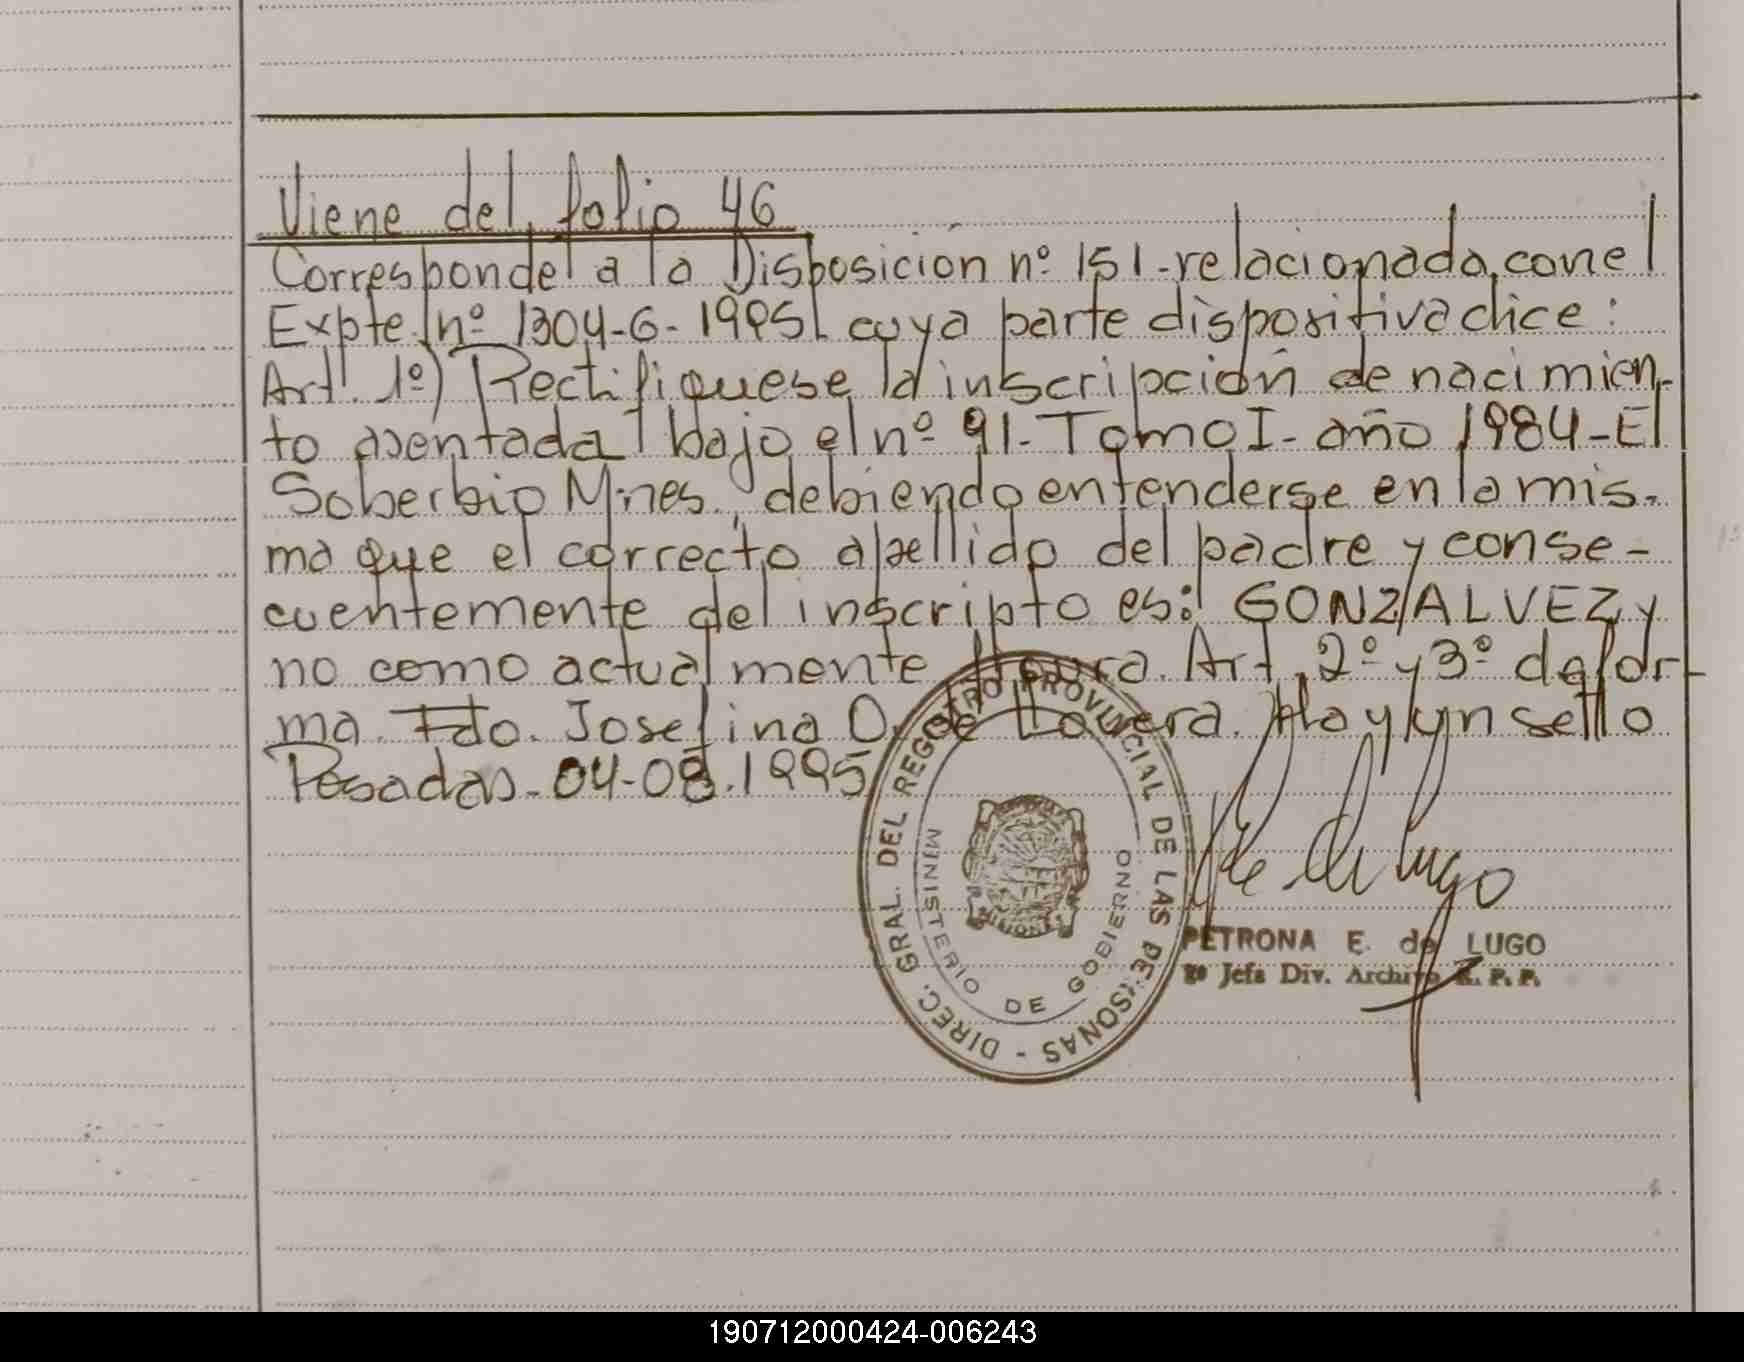 Viene del folio 46
Corresponde a la Disposición nº 151-relacionada con el
Expte. nº 1304-6-1995 cuya parte dispositiva dice:
Art. 1º) Rectifiquese la inscripción de nacimien-
to asentada bajo el nº 91-Tomo I- año 1984-El
Soberbio Mnes., debiendo entenderse en la mis-
ma que el correcto apellido del padre y conse-
cuentemente del inscripto es: GONZALVEZ y
no como actualmente figura. Art. 2º y 3º de for-
ma. Fdo. Josefina O. de Llovera. Hay un sello
Posadas-04-08-1995
DIREC. GRAL. DEL REGISTRO PROVINCIAL DE LAS PERSONAS -
MINISTERIO DE GOBIERNO
PETRONA E. de LUGO
2º Jefa Div. Archivo R. P. P.
190712000424-006243